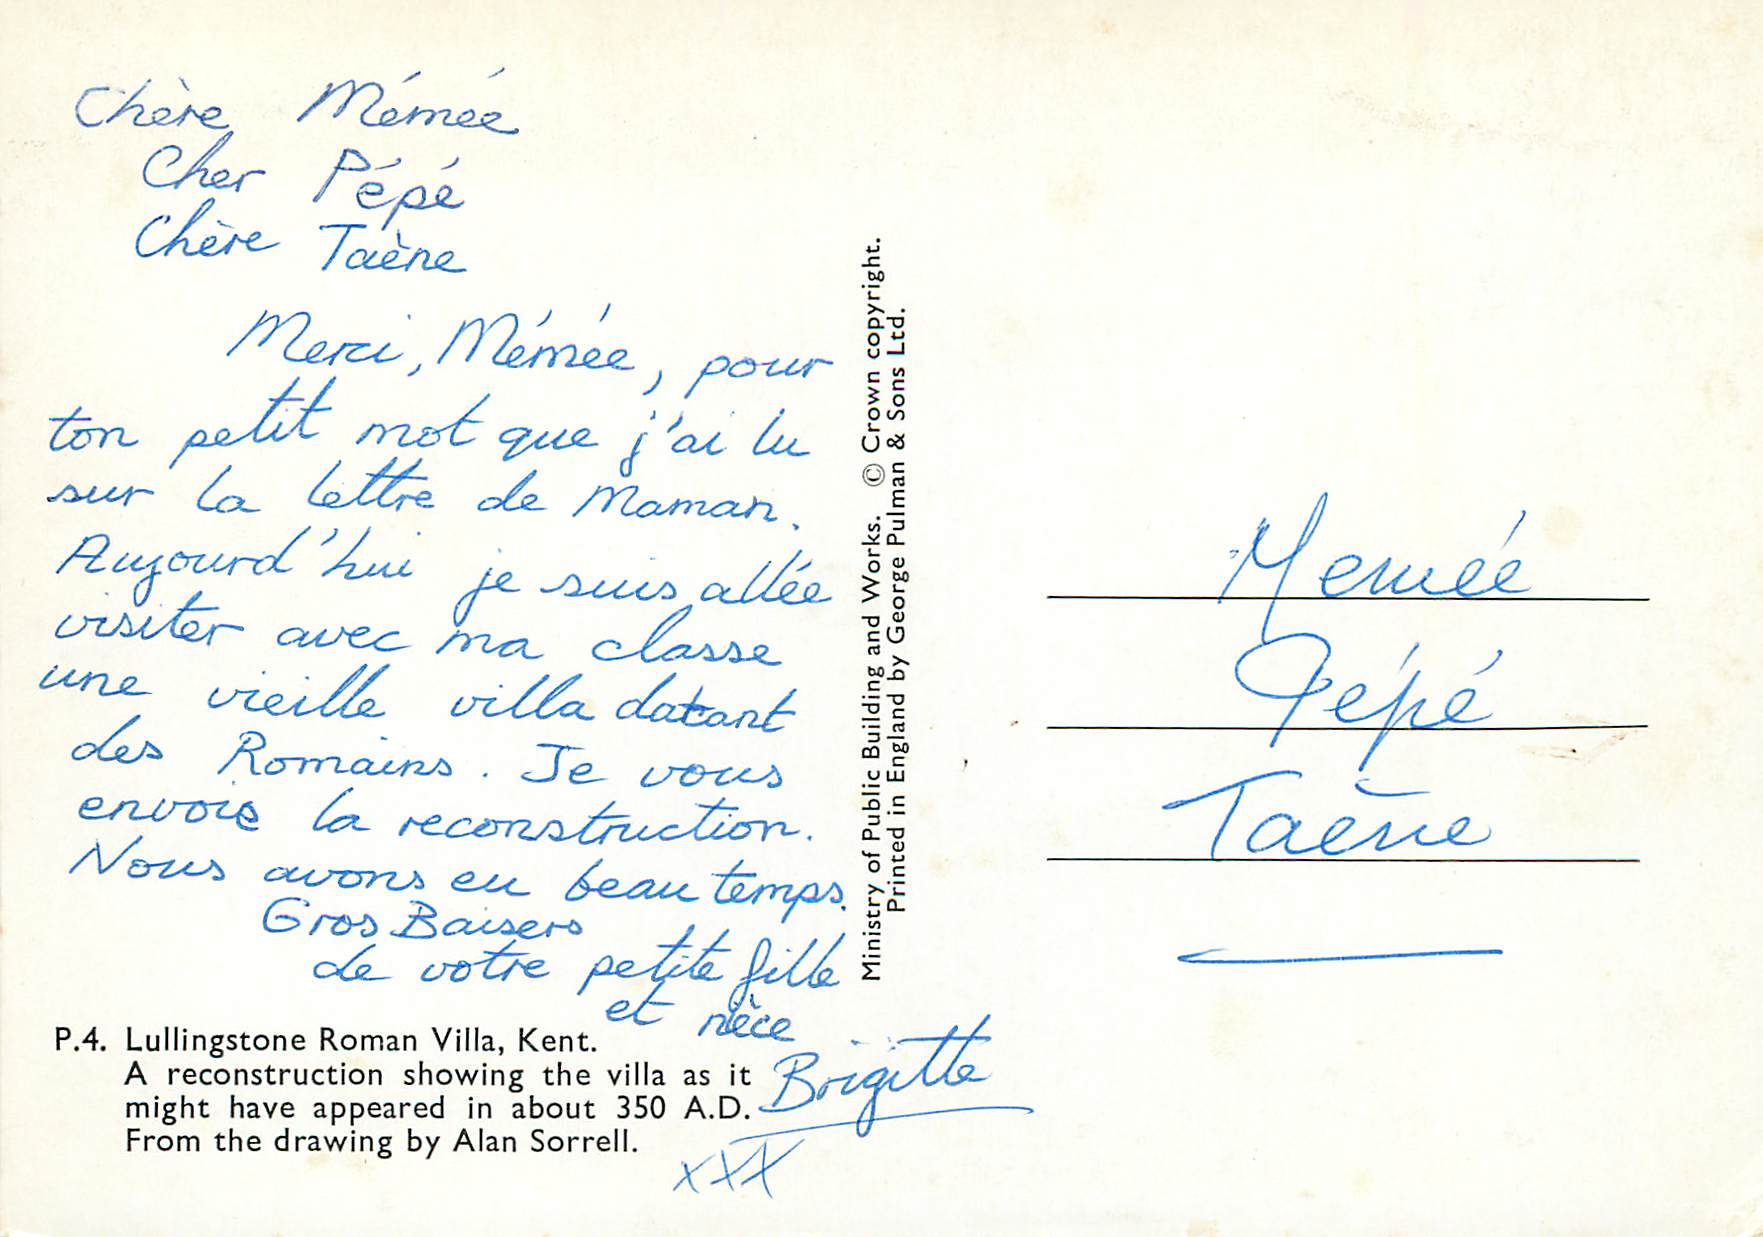 Chère Mémée
Cher Pépé
Chère Taène
Merci, Mémée, pour
ton petit mot que j'ai lu
sur la lettre de Maman.
Aujourd'hui je suis allée
visiter avec ma classe
une vieille villa datant
des Romains. Je vous
envoie la reconstruction.
Nous avons eu beau temps.
Gros Baisers
de votre petite fille
et nièce
Brigitte
XXX
P.4. Lullingstone Roman Villa, Kent.
A reconstruction showing the villa as it
might have appeared in about 350 A.D.
From the drawing by Alan Sorrell.
Ministry of Public Building and Works. © Crown copyright.
Printed in England by George Pulman & Sons Ltd.
Memée
Pépé
Taène